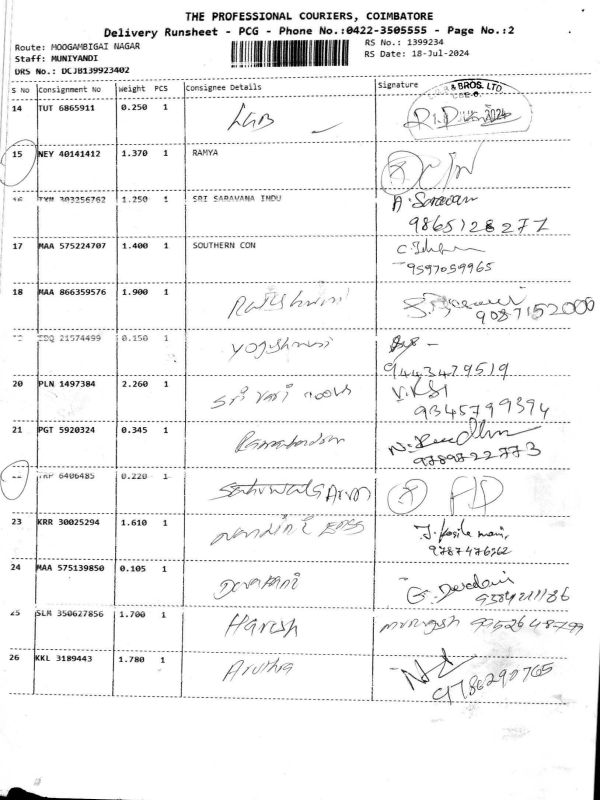 THE PROFESSIONAL COURIERS, COIMBATORE
Delivery Runsheet - PCG - Phone No.:0422-3505555 - Page No.:2
Route: MOOGAMBIGAI NAGAR
RS No.: 1399234
Staff: MUNIYANDI
RS Date: 18-Jul-2024
DRS No.: DCJB139923402
S No Consignment No Weight PCS Consignee Details Signature
& BROS. LTD
14 TUT 6865911 0.250 1 LGB
15 NEY 40141412 1.370 1 RAMYA
16 303256762 1.250 1 SRI SARAVANA INDU A. Saravan
9865128271
17 MAA 575224707 1.400 1 SOUTHERN CON
9597059965
18 MAA 866359576 1.900 1 Rajeshwari
9087152000
21574499 0.150 1 Yogeshwari
9443479519
20 PLN 1497384 2.260 1 Sri Vari
9345799394
21 PGT 5920324 0.345 1
9789722773
6406485 0.220 1
23 KRR 30025294 1.610 1 Nandini
9787476562
24 MAA 575139850 0.105 1 Devarani G. Devadani
9384211186
25 SLM 350627856 1.700 1 Haresh murugesh 9752648799
26 KKL 3189443 1.780 1 Aruthra
9786290765